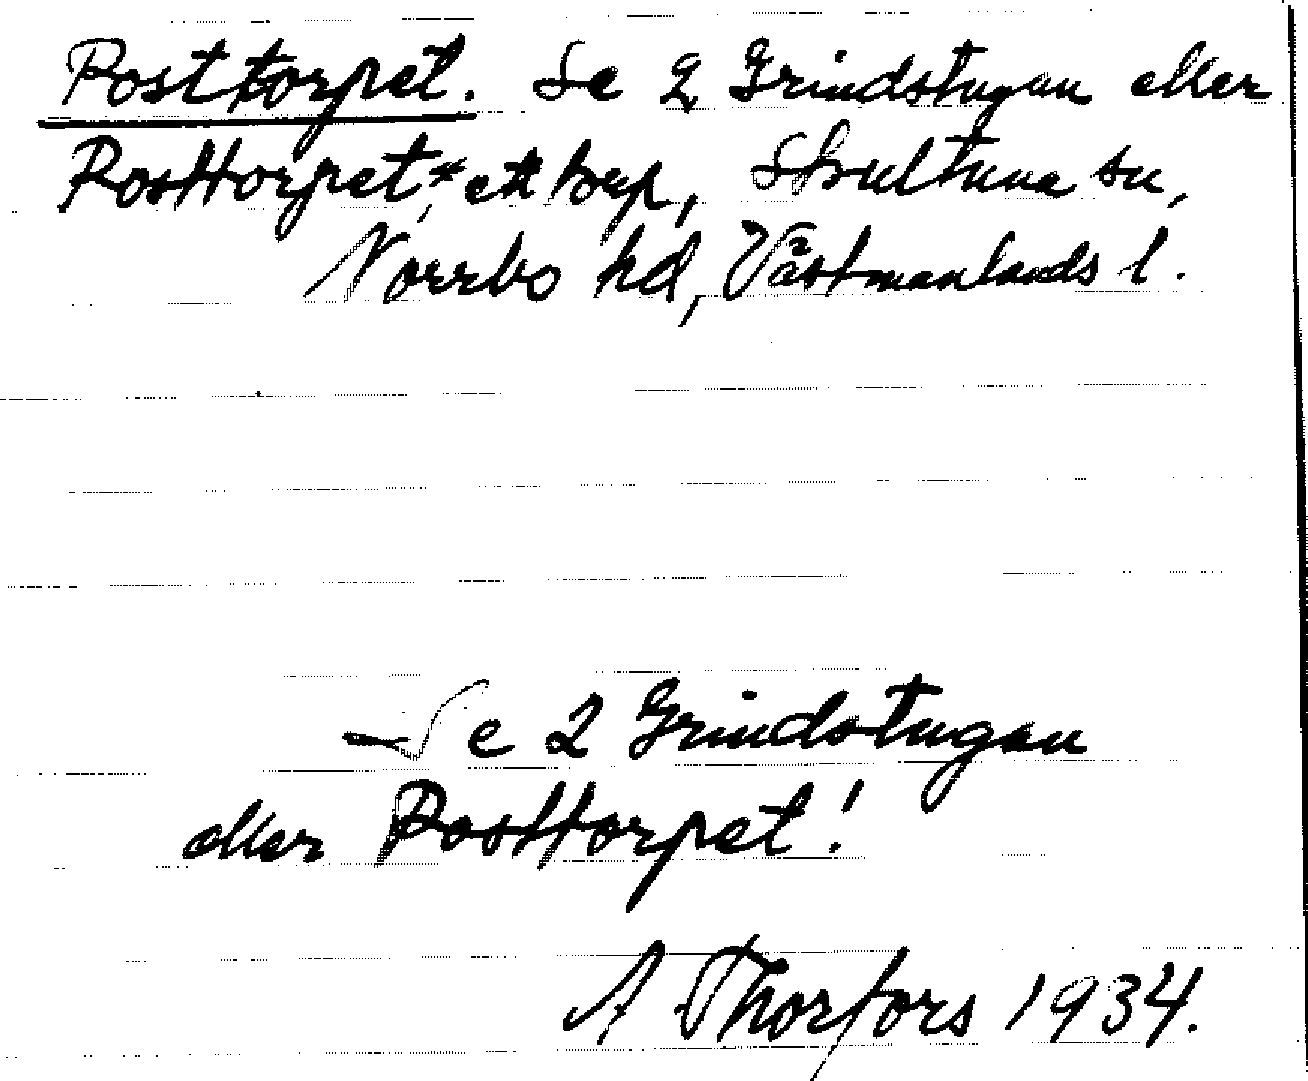 Posttorpet. Se 2 Grindstugan eller
Posttorpet, ett torp, Skultuna sn,
Norrbo hd, Västmanlands l.
Se 2 Grindstugan
eller Posttorpet!
A Thorfors 1934.